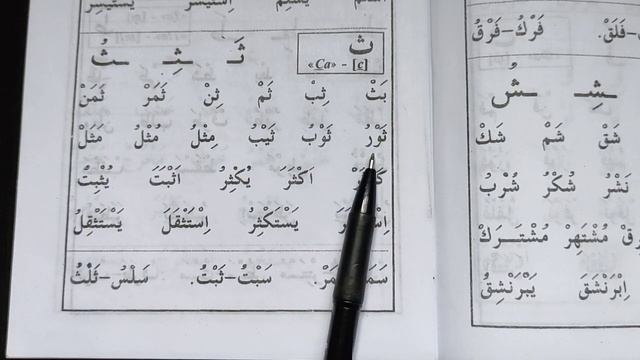 ث
«Ca» - [c]
ثَـ ـثِـ ـثُ
بَثْ ثِبْ ثَمْ ثِنْ ثَمَرْ ثَمَنْ
ثَوْرُ ثَوْبُ ثَيْبُ مِثْلُ مُثْلُ مَثَلْ
اَكْثَرَ يُكْثِرُ اَثْبَتَ يُثْبِتُ
يَسْتَكْثِرُ اِسْتَثْقَلَ يَسْتَثْقِلُ
سَبْتُ–ثَبْتُ. سَلْسُ–ثَلْثُ
فَلَقْ. فَرْكُ–فَرْقُ
ـشِـ ـشُ
شَقْ شَمْ شَكْ
نَشْرُ شُكْرُ شُرْبُ
مُشْتَهِرْ مُشْتَـــرَكْ
اِبْرَنْشَقَ يَبْرَنْشِقُ